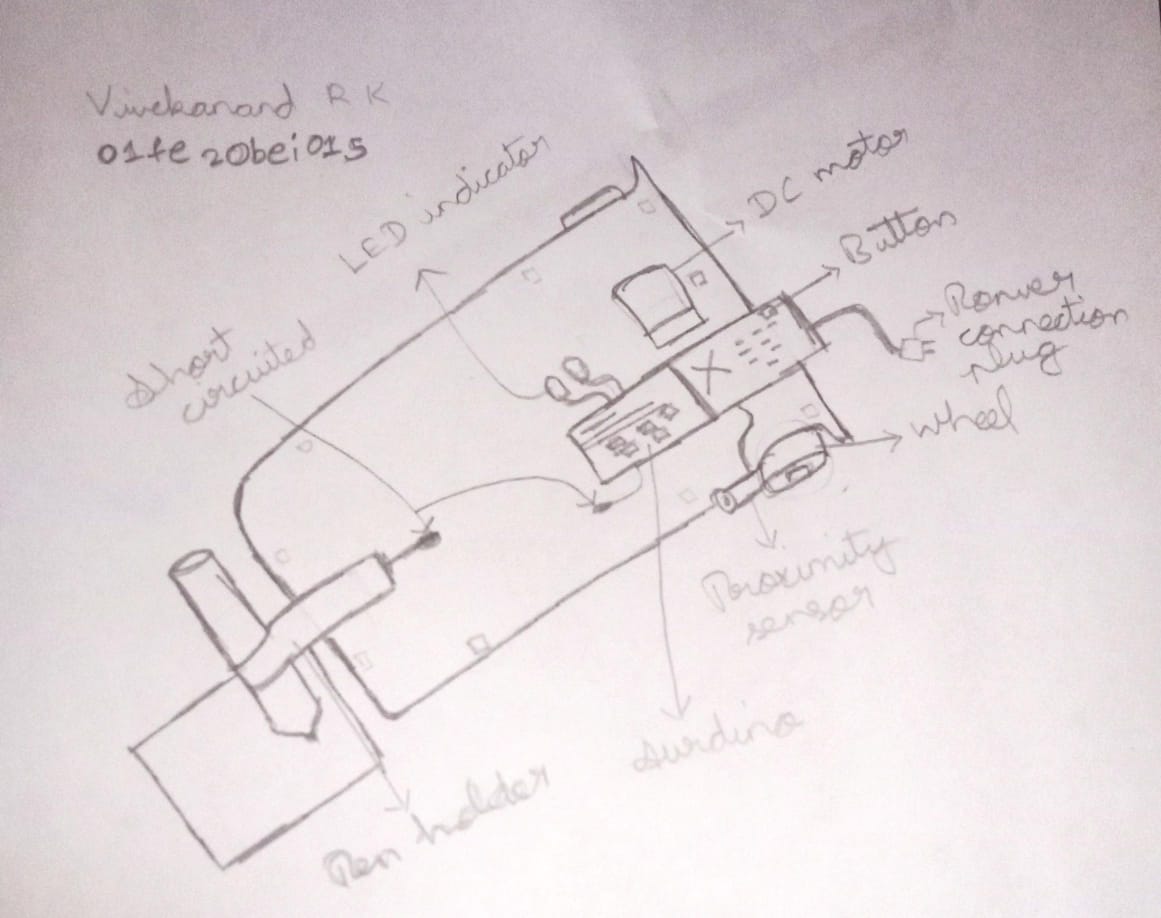 Vivekanand R K
01fe20bei015
LED indicator
DC motor
Button
Ponwer
connection
plug
Short
circuited
wheel
Proximity
sensor
Aurdino
Pen holder